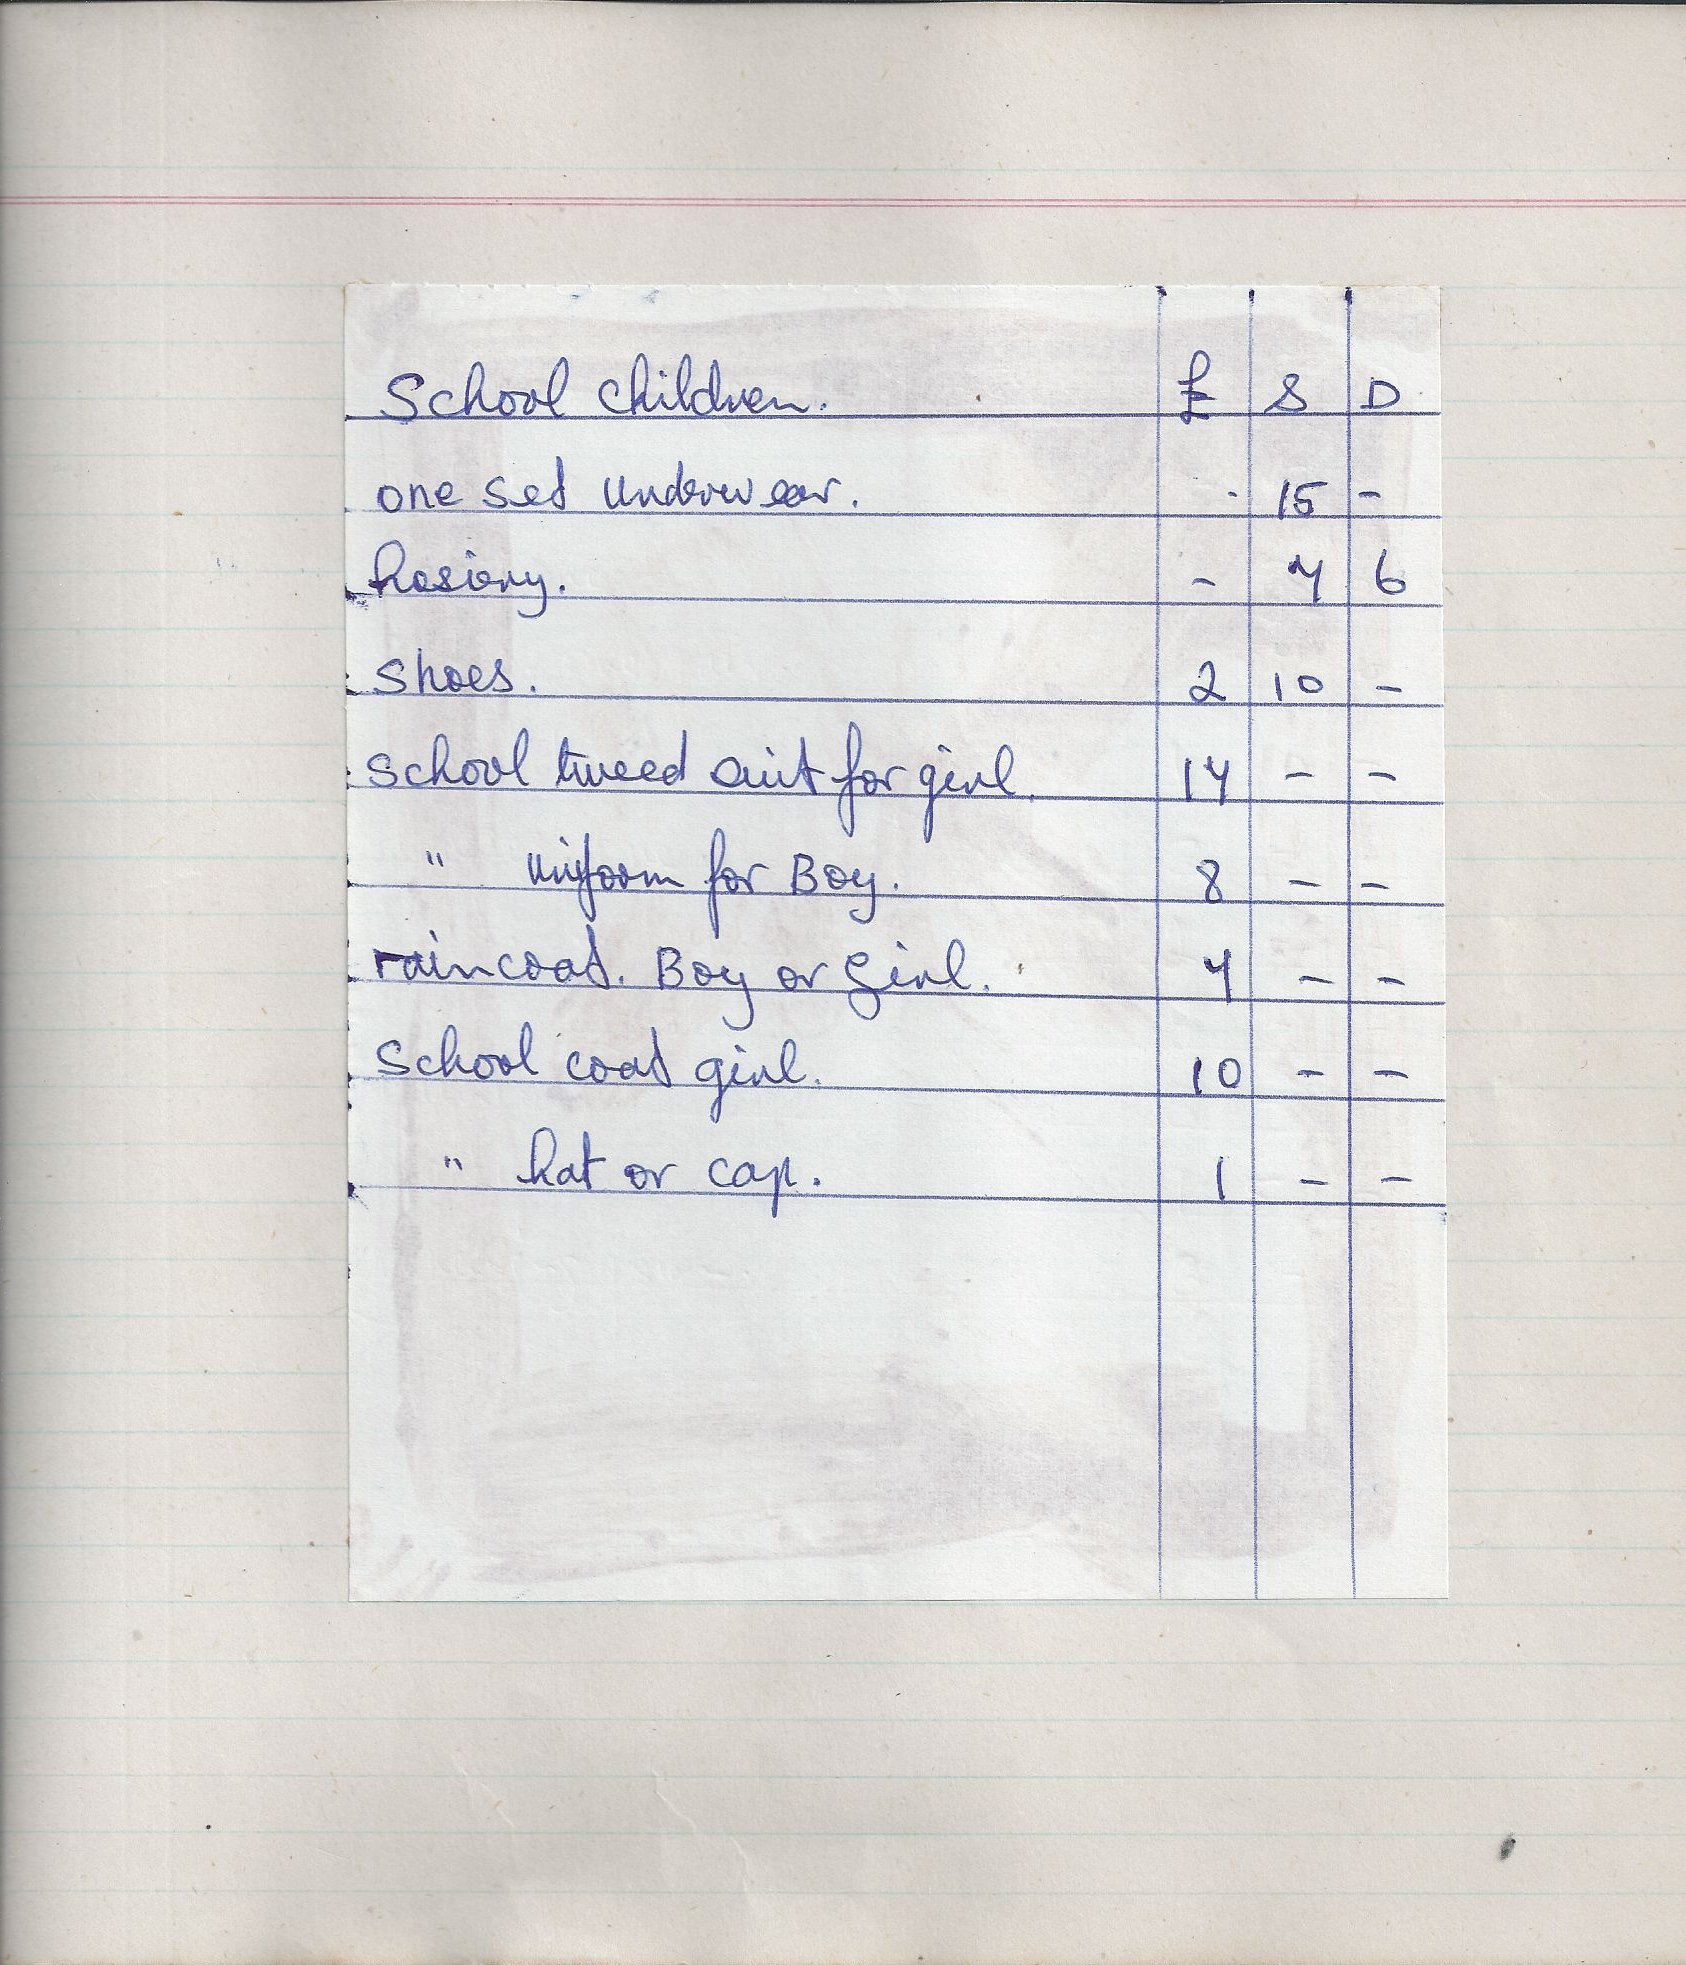 School children. £ S D
one set underwear. - 15 -
hosiery. - 4 6
shoes. 2 10 -
School tweed suit for girl. 14 - -
" Uniform for Boy. 8 - -
raincoat. Boy or Girl. 4 - -
School coat girl. 10 - -
" hat or cap. 1 - -